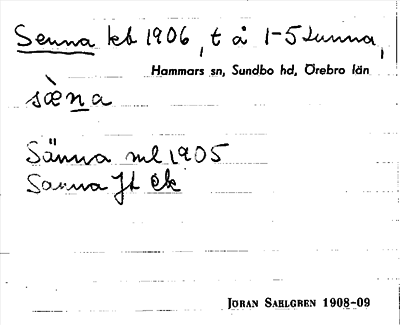 Senna kb 1906, t å 1-5 Sunna,
Hammars sn, Sundbo hd, Örebro län
sæna
Sänna ml 1905
Sanna Jt ek
JORAN SAHLGREN 1908-09